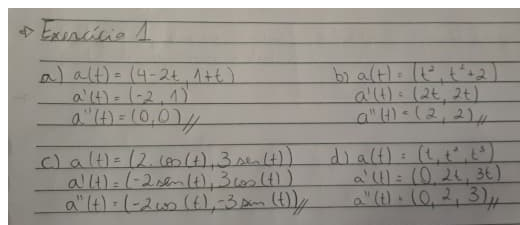 => Exercício 1
a) a(t) = (4-2t, 1+t)
a'(t) = (-2, 1)
a''(t) = (0,0)//
b) a(t) = (t², t²+2)
a'(t) = (2t, 2t)
a''(t) = (2, 2)//
c) a(t) = (2.cos(t), 3 sen(t))
a'(t) = (-2 sen(t), 3 cos(t))
a''(t) = (-2 cos(t), -3 sen(t))//
d) a(t) = (t, t², t³)
a'(t) = (0, 2t, 3t)
a''(t) = (0, 2, 3)//